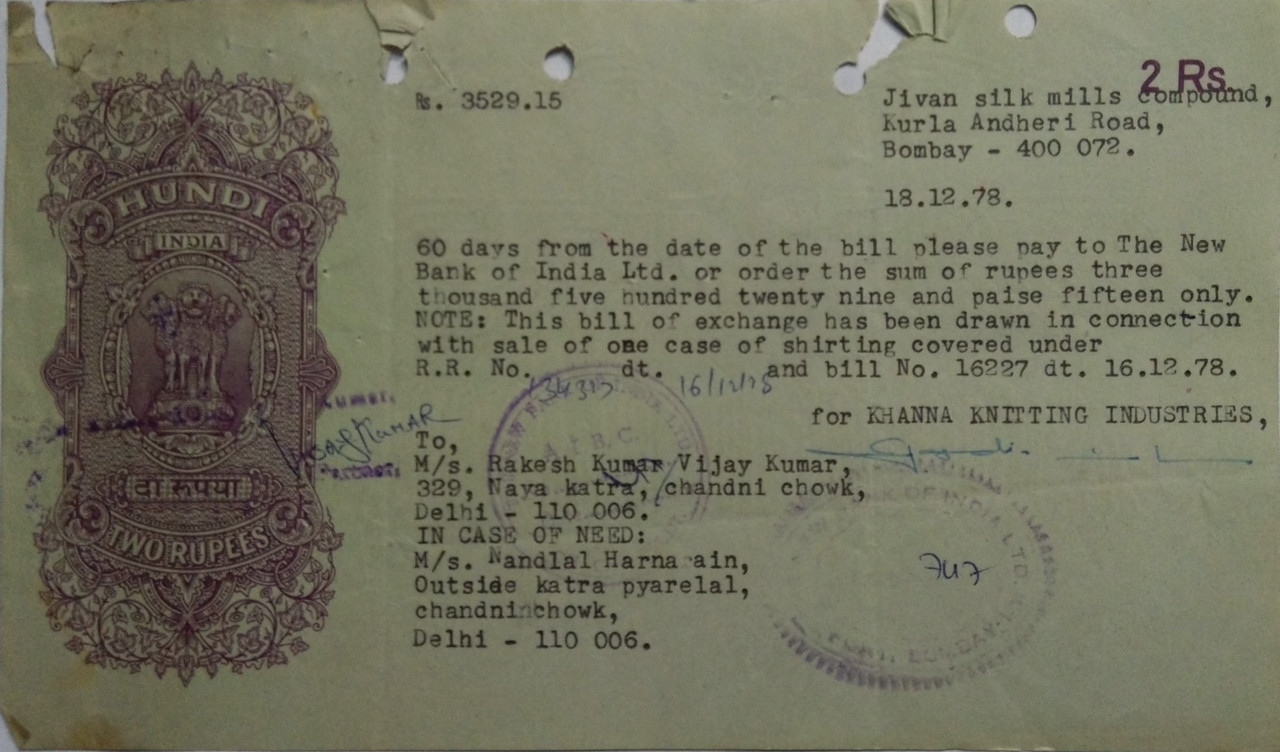 2 Rs.
Rs. 3529.15
Jivan silk mills compound,
Kurla Andheri Road,
Bombay - 400 072.
18.12.78.
HUNDI
INDIA
दो रुपया
TWO RUPEES
60 days from the date of the bill please pay to The New
Bank of India Ltd. or order the sum of rupees three
thousand five hundred twenty nine and paise fifteen only.
NOTE: This bill of exchange has been drawn in connection
with sale of one case of shirting covered under
R.R. No. 134313 dt. 16/12/78 and bill No. 16227 dt. 16.12.78.
for KHANNA KNITTING INDUSTRIES,
To,
M/s. Rakesh Kumar Vijay Kumar,
329, Naya katra, chandni chowk,
Delhi - 110 006.
IN CASE OF NEED:
M/s. Nandlal Harnarain,
Outside katra pyarelal,
chandni chowk,
Delhi - 110 006.
Kumar
BANK OF INDIA LTD.
747